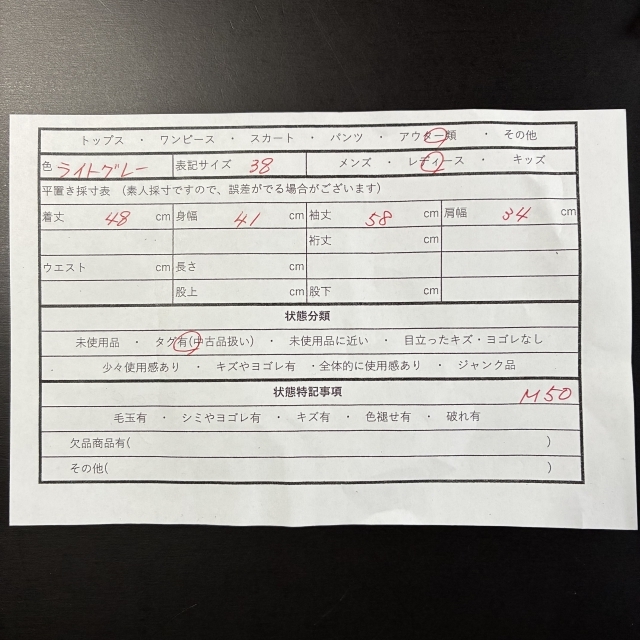 トップス ・ ワンピース ・ スカート ・ パンツ ・ アウター類 ・ その他
色 ライトグレー 表記サイズ 38 メンズ ・ レディース ・ キッズ
平置き採寸表 （素人採寸ですので、誤差がでる場合がございます）
着丈 48 cm 身幅 41 cm 袖丈 58 cm 肩幅 34 cm
裄丈 cm
ウエスト cm 長さ cm
股上 cm 股下 cm
状態分類
未使用品 ・ タグ有(中古品扱い) ・ 未使用品に近い ・ 目立ったキズ・ヨゴレなし
少々使用感あり ・ キズやヨゴレ有 ・全体的に使用感あり ・ ジャンク品
状態特記事項
M50
毛玉有 ・ シミやヨゴレ有 ・ キズ有 ・ 色褪せ有 ・ 破れ有
欠品商品有( )
その他( )